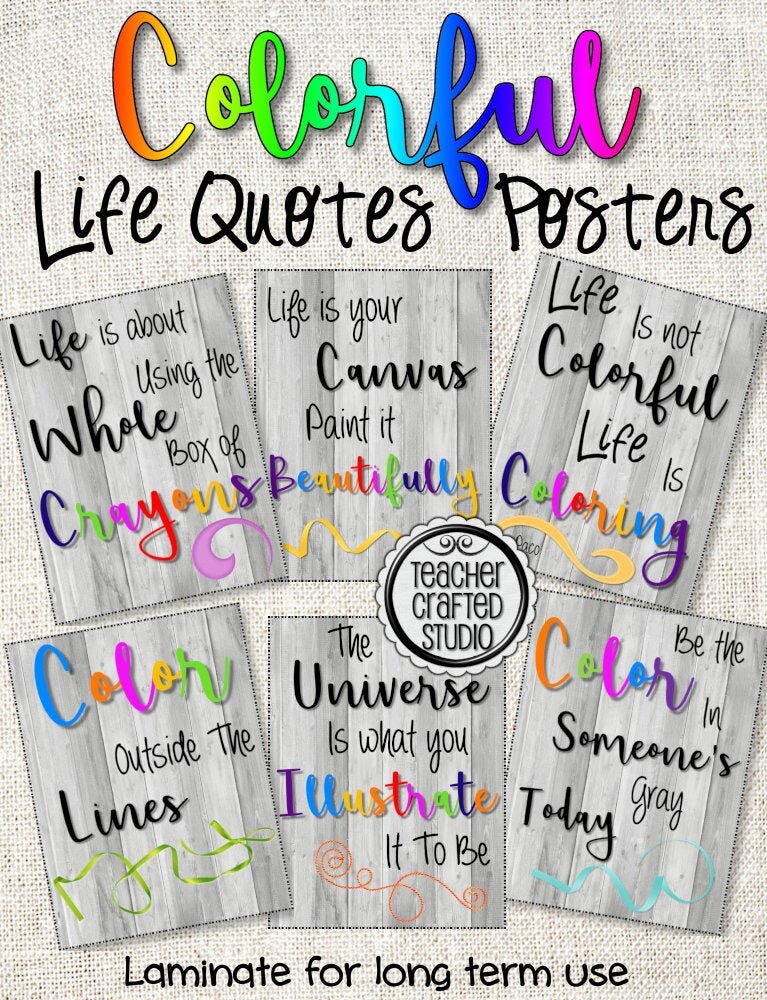 Colorful
Life Quotes Posters
Life is about
Using the
Whole
Box of
Crayons
Life is your
Canvas
Paint it
Beautifully
Life
Is not
Colorful
Life
Is
Coloring
Paco
TEACHER
CRAFTED
STUDIO
Color
Outside The
Lines
The
Universe
Is what you
Illustrate
It To Be
Be the
Color
In
Someone's
Gray
Today
Laminate for long term use